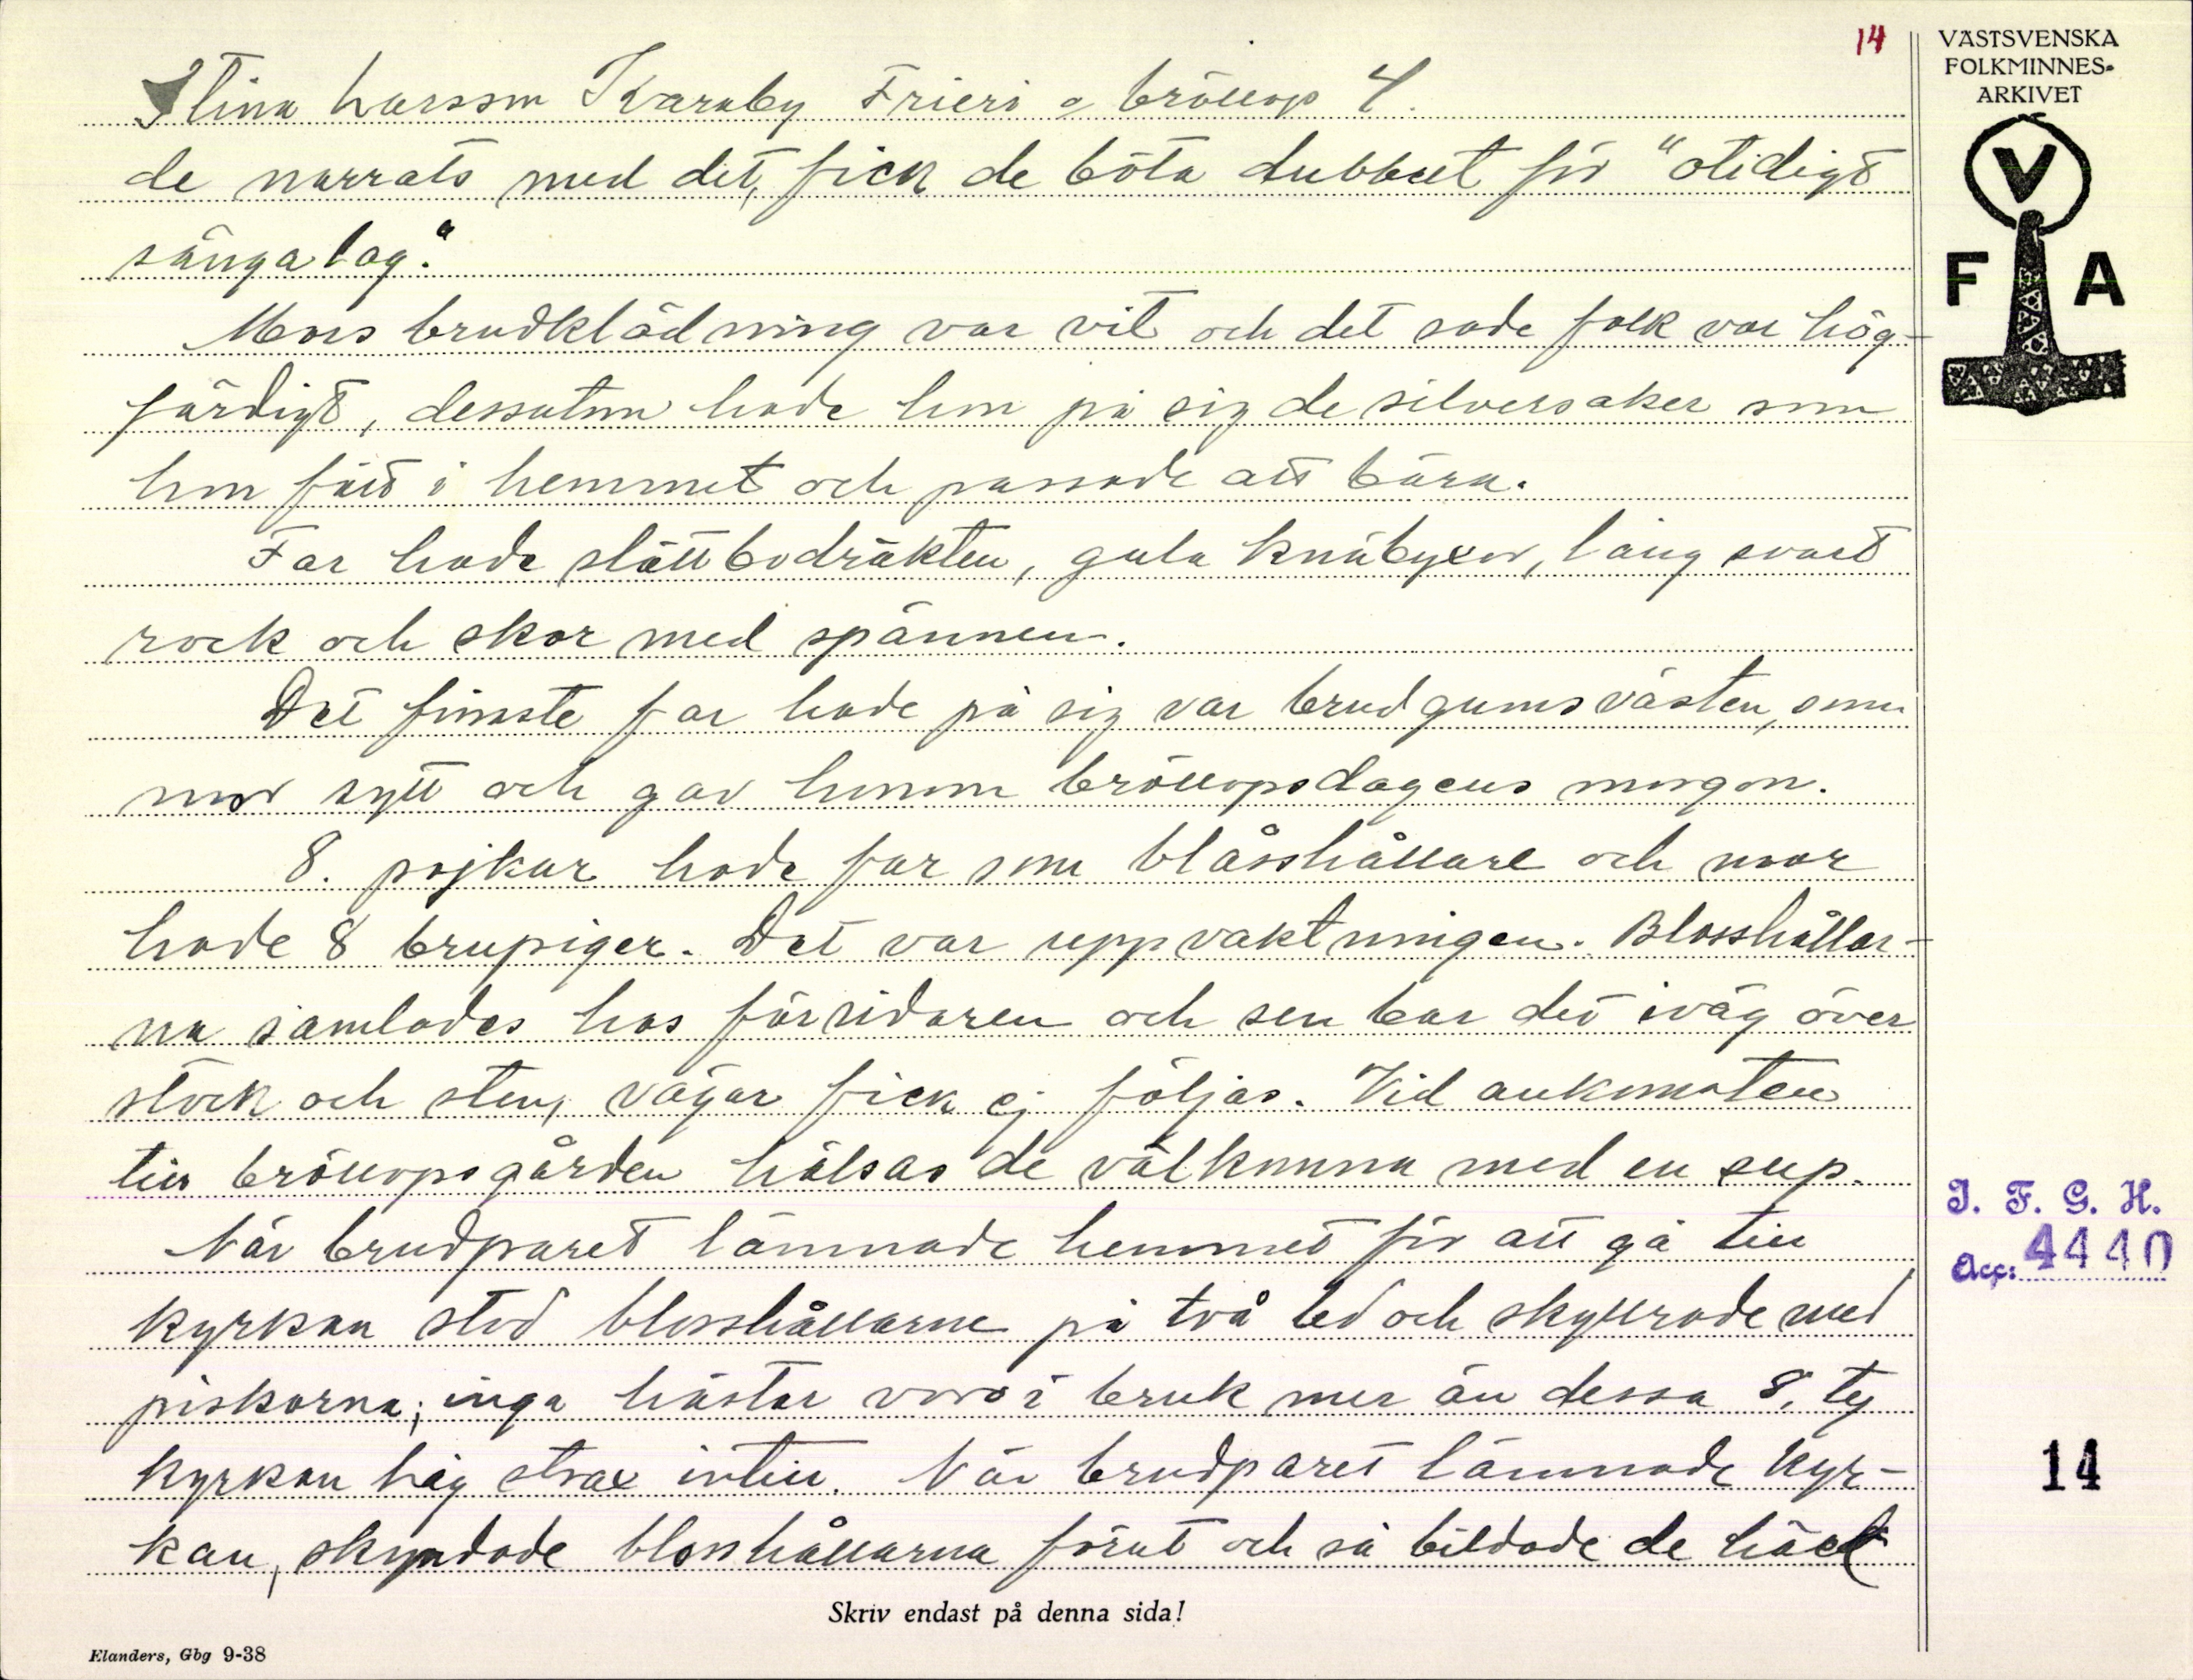 14
VÄSTSVENSKA
FOLKMINNES-
ARKIVET
V
F A
Stina Larsson Karaby Frieri o bröllop 4.
de narrats med det, fick de böta dubbelt för "otidigt
sängalag."
Mors brudklädning var vit och det sade folk var hög-
färdigt, dessutom hade hon på sig de silversaker som
hon fått i hemmet och passade att bära.
Far hade slättbodräkten, gula knäbyxor, lång svart
rock och skor med spännen.
Det finaste far hade på sig var brudgumsvästen, som
mor sytt och gav honom bröllopsdagens morgon.
8. pojkar hade far som blåsshållare och mor
hade 8 brupiger. Det var uppvaktningen. Blosshållar-
na samlades hos förridaren och sen bar det iväg över
stock och sten, vägar fick ej följas. Vid ankomsten
till bröllopsgården hälsas de välkomna med en sup.
När brudparet lämnade hemmet för att gå till
kyrkan stod blosshållarne på två led och skyllrade med
piskorna; inga hästar voro i bruk mer än dessa 8, ty
kyrkan låg strax intill. När brudparet lämnade kyr-
kan, skyndade blosshållarna förut och så bildade de häck
I. F. G. H.
Acc: 4440
14
Skriv endast på denna sida!
Elanders, Gbg 9-38